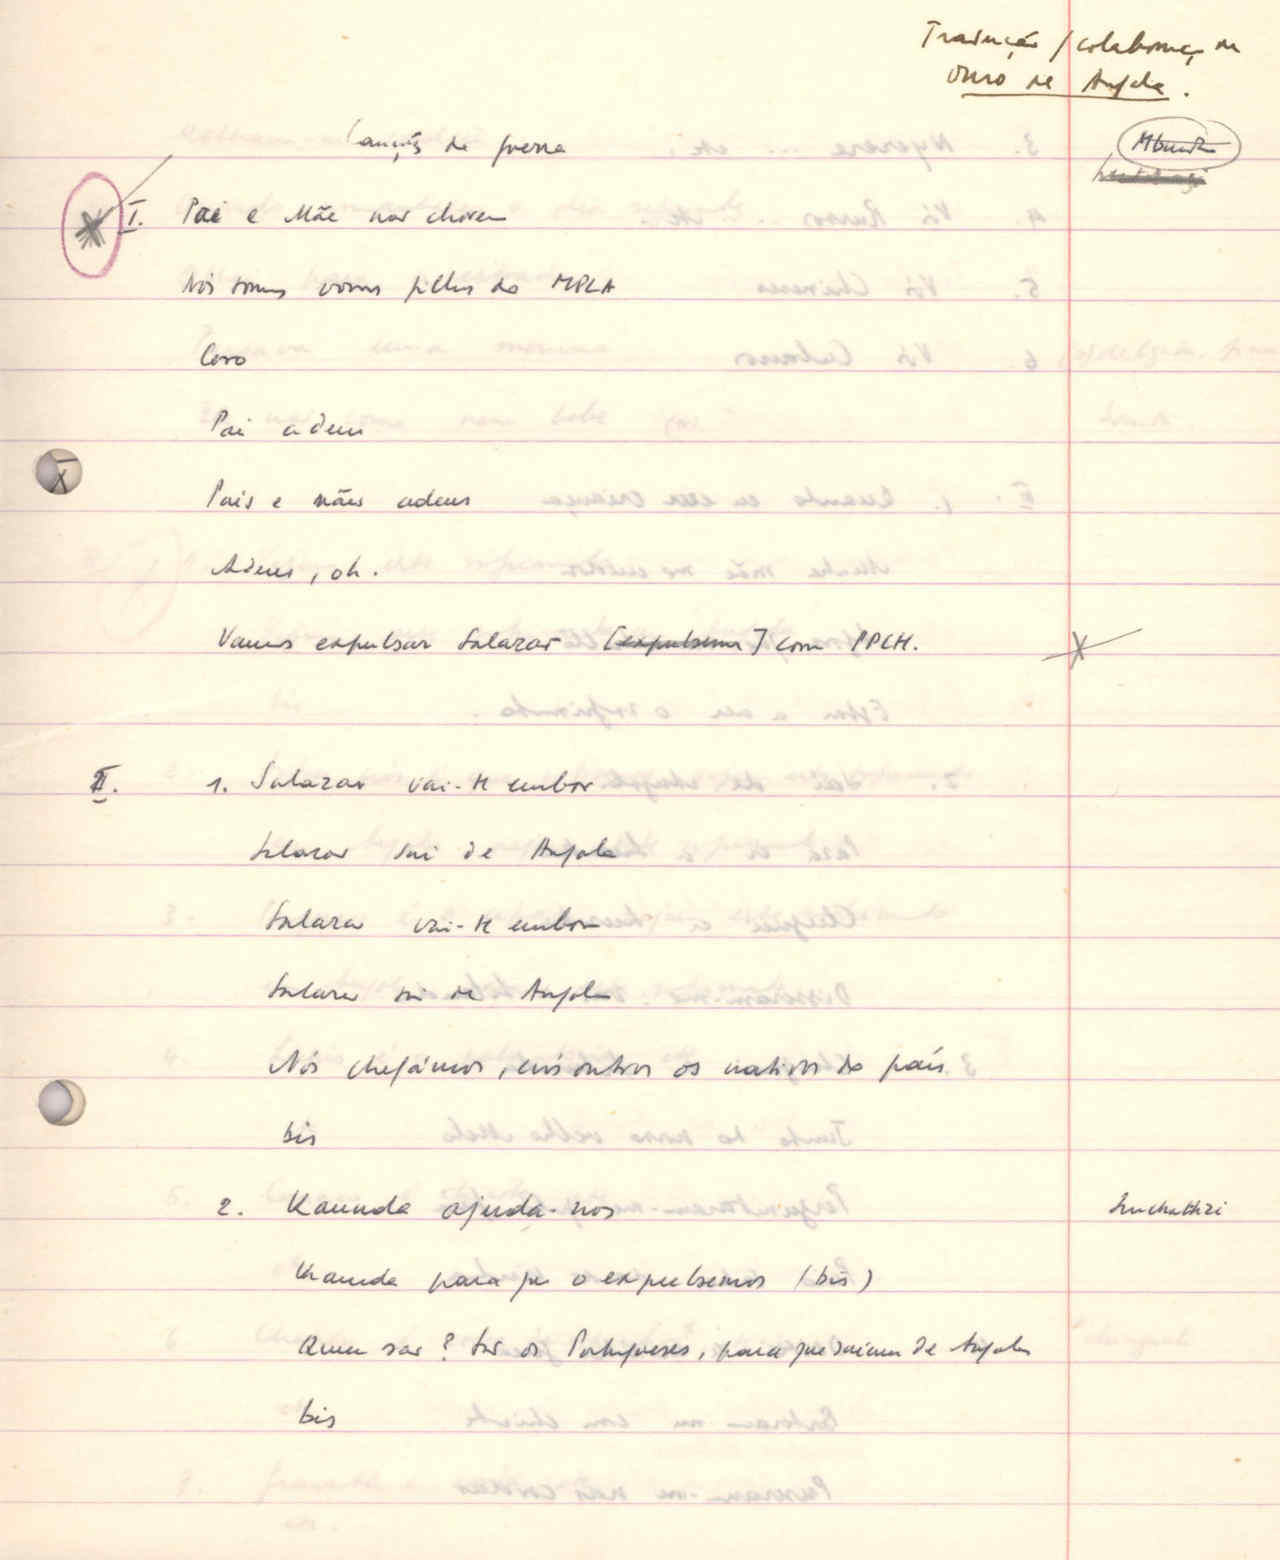 Tradução / colaboração de
Ouro de Angola.
Canções de guerra
Mbunda
I. Pai e Mãe não chorem
Nós somos vossos filhos do MPLA
Coro
Pai adeus
X
Pais e mães adeus
Adeus, oh.
Vamos expulsar Salazar [expulsemos] com PPCH.
II. 1. Salazar vai-te embora
Salazar sai de Angola
Salazar vai-te embora
Salazar sai de Angola
Nós chegámos, nós outros os nativos do país
bis
2. Kaunda ajuda-nos
Kaunda para que o expulsemos (bis)
Quem são? São os Portugueses, para que saiam de Angola
bis